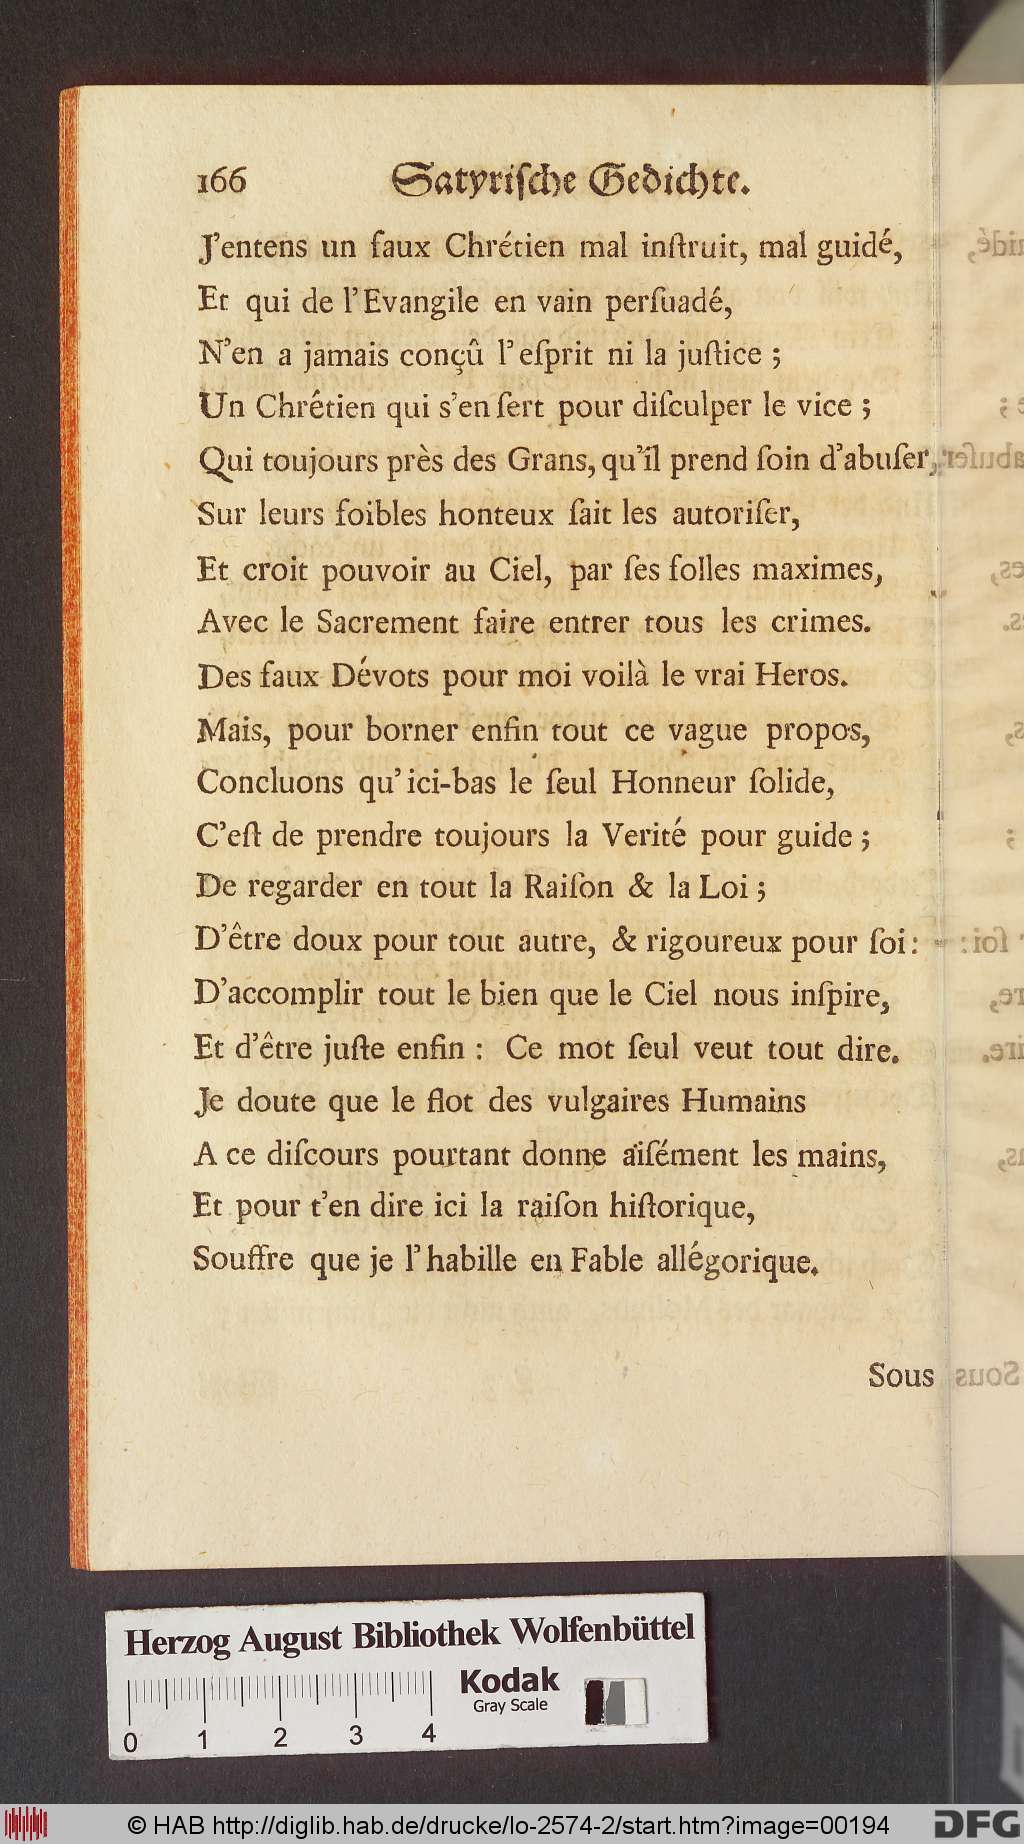 166 Satyriſche Gedichte.
J'entens un faux Chrétien mal inſtruit, mal guidé,
Et qui de l'Evangile en vain perſuadé,
N'en a jamais conçû l'eſprit ni la juſtice ;
Un Chrêtien qui s'en ſert pour diſculper le vice ;
Qui toujours près des Grans, qu'il prend ſoin d'abuſer,
Sur leurs foibles honteux ſait les autoriſer,
Et croit pouvoir au Ciel, par ſes folles maximes,
Avec le Sacrement faire entrer tous les crimes.
Des faux Dévots pour moi voilà le vrai Heros.
Mais, pour borner enfin tout ce vague propos,
Concluons qu'ici-bas le ſeul Honneur ſolide,
C'eſt de prendre toujours la Verité pour guide ;
De regarder en tout la Raiſon & la Loi ;
D'être doux pour tout autre, & rigoureux pour ſoi :
D'accomplir tout le bien que le Ciel nous inſpire,
Et d'être juſte enfin : Ce mot ſeul veut tout dire.
Je doute que le flot des vulgaires Humains
A ce diſcours pourtant donne aiſément les mains,
Et pour t'en dire ici la raiſon hiſtorique,
Souffre que je l'habille en Fable allégorique.
Sous
Herzog August Bibliothek Wolfenbüttel
Kodak
Gray Scale
0 1 2 3 4
© HAB http://diglib.hab.de/drucke/lo-2574-2/start.htm?image=00194
DFG